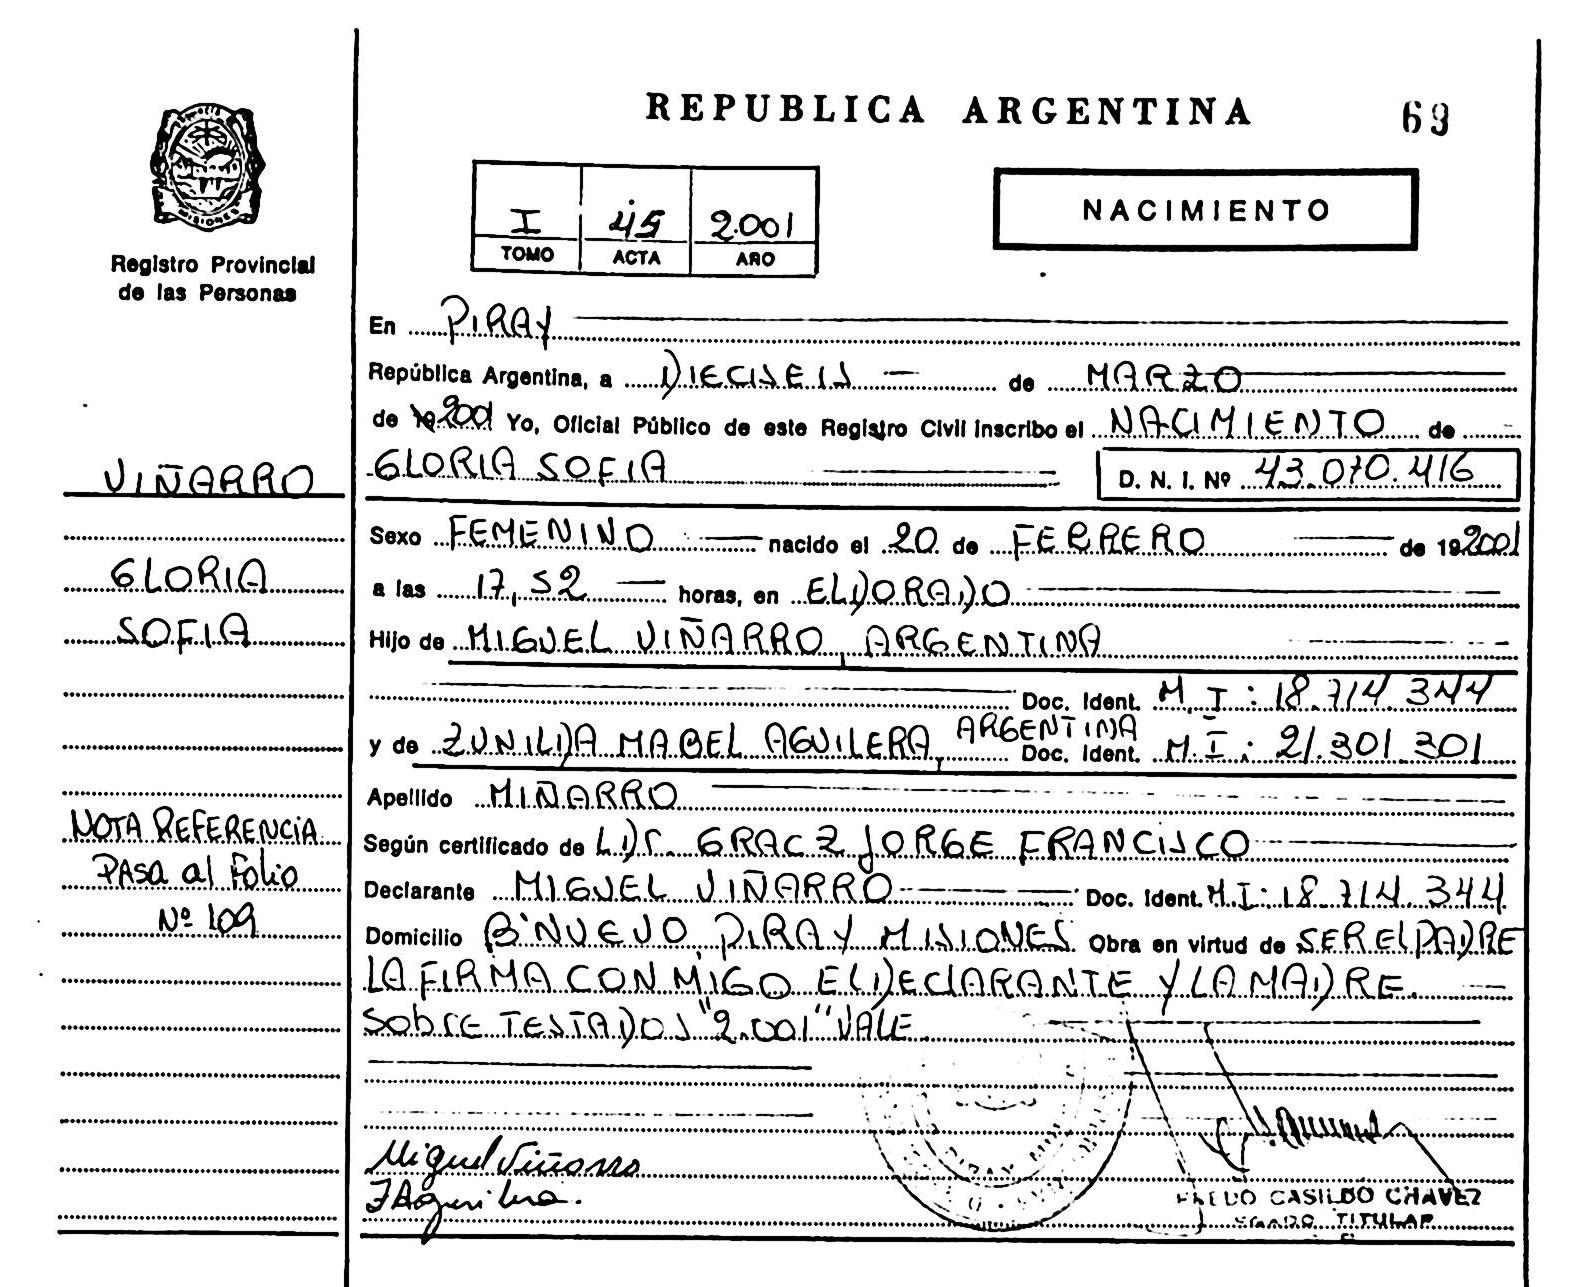 REPUBLICA ARGENTINA
69
MISIONES
Registro Provincial
de las Personas
I 45 2.001
TOMO ACTA AÑO
NACIMIENTO
En PIRAY
República Argentina, a DIECISEIS de MARZO
de 19 2001 Yo, Oficial Público de este Registro Civil inscribo el NACIMIENTO de
GLORIA SOFIA D. N. I. Nº 43.070.416
Sexo FEMENINO nacido el 20 de FEBRERO de 19 2001
a las 17,52 horas, en ELDORADO
Hijo de MIGUEL VIÑARRO, ARGENTINA
Doc. Ident. M.I: 18.714.344
y de ZUNILDA MABEL AGUILERA, ARGENTINA Doc. Ident. M.I: 21.301.301
Apellido MIÑARRO
Según certificado de LDr. GRACZ JORGE FRANCISCO
Declarante MIGUEL VIÑARRO Doc. Ident. M.I: 18.714.344
Domicilio Bº NUEVO, PIRAY MISIONES Obra en virtud de SER EL PADRE
LA FIRMA CONMIGO EL DECLARANTE Y LA MADRE.
SOBRE TESTADOS "2.001" VALE
Miguel Viñarro
ZAguilera.
CASILDO CHAVEZ
TITULAR
VIÑARRO
GLORIA
SOFIA
NOTA REFERENCIA
PASA al Folio
Nº 109